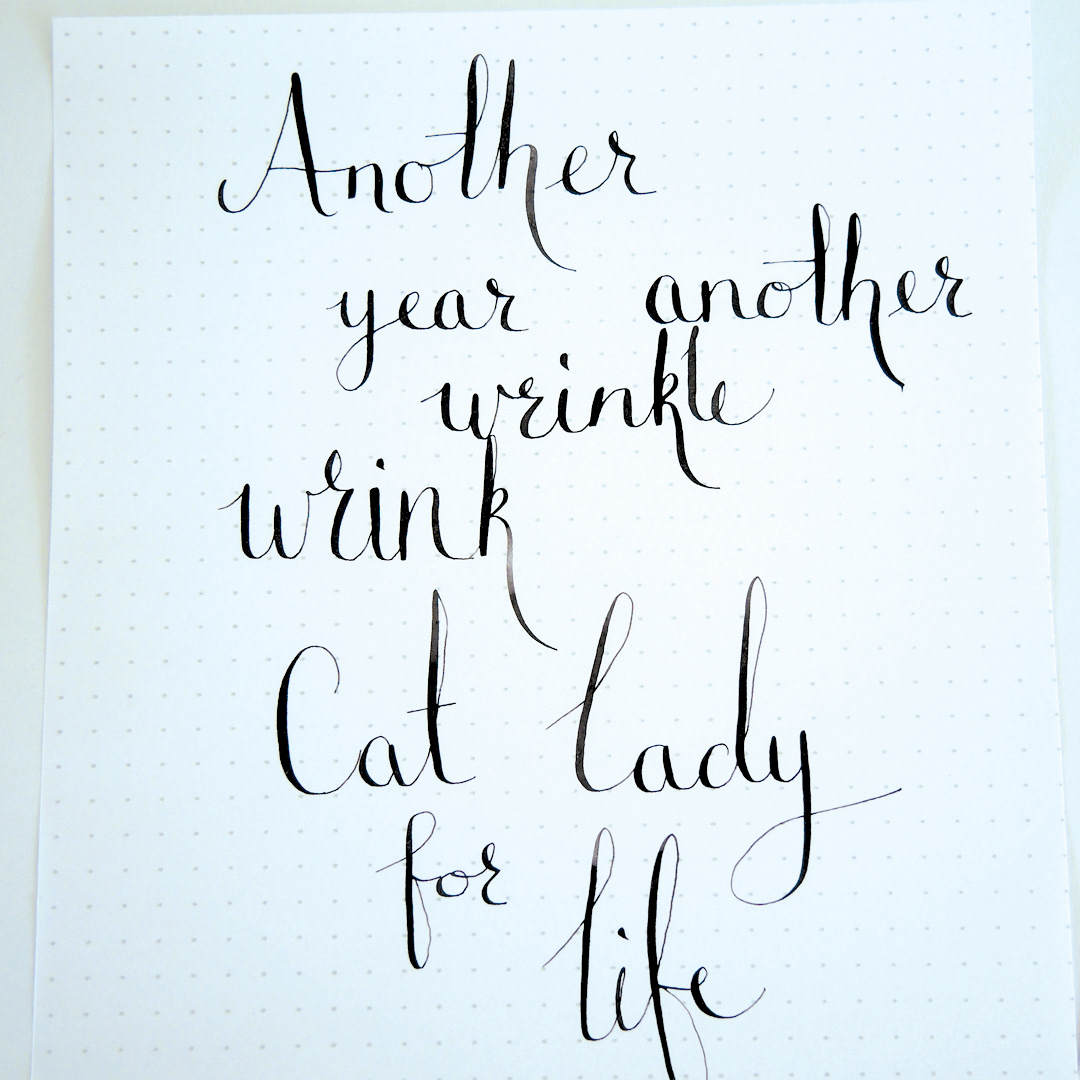 Another
year another
wrinkle
wrink
Cat lady
for
life